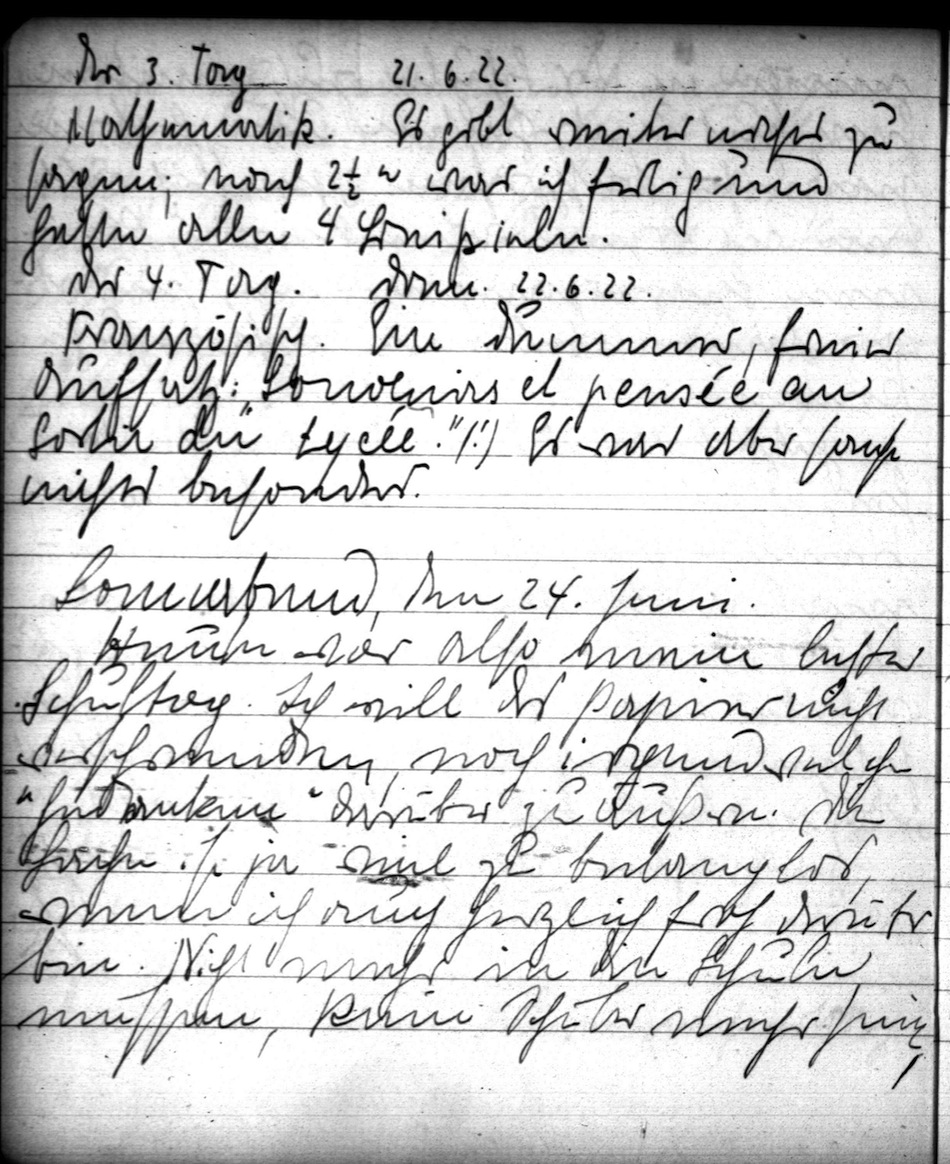 Der 3. Tag 21. 6. 22.
Mathematik. Es gibt weiter nichts zu
sagen; nach 2½ u war ich fertig und
hatte alle 4 Beispiele.
Der 4. Tag. Donn. 22. 6. 22.
Französisch. Ein dummer, freier
Aufsatz: "Souvenirs et pensée au
sortir du Lycée." (!) Es war aber sonst
nichts besonders.
Sonnabend, den 24. Juni.
Heute war also mein letzter
Schultag. Ich will das Papier nicht
verschwenden, noch irgendwelche
"Gedanken" darüber zu äußern. Die
Sache ist ja viel zu belanglos,
wenn ich auch herzlich froh darüber
bin. Nicht mehr in die Schule
müssen, kein Schüler mehr sein,